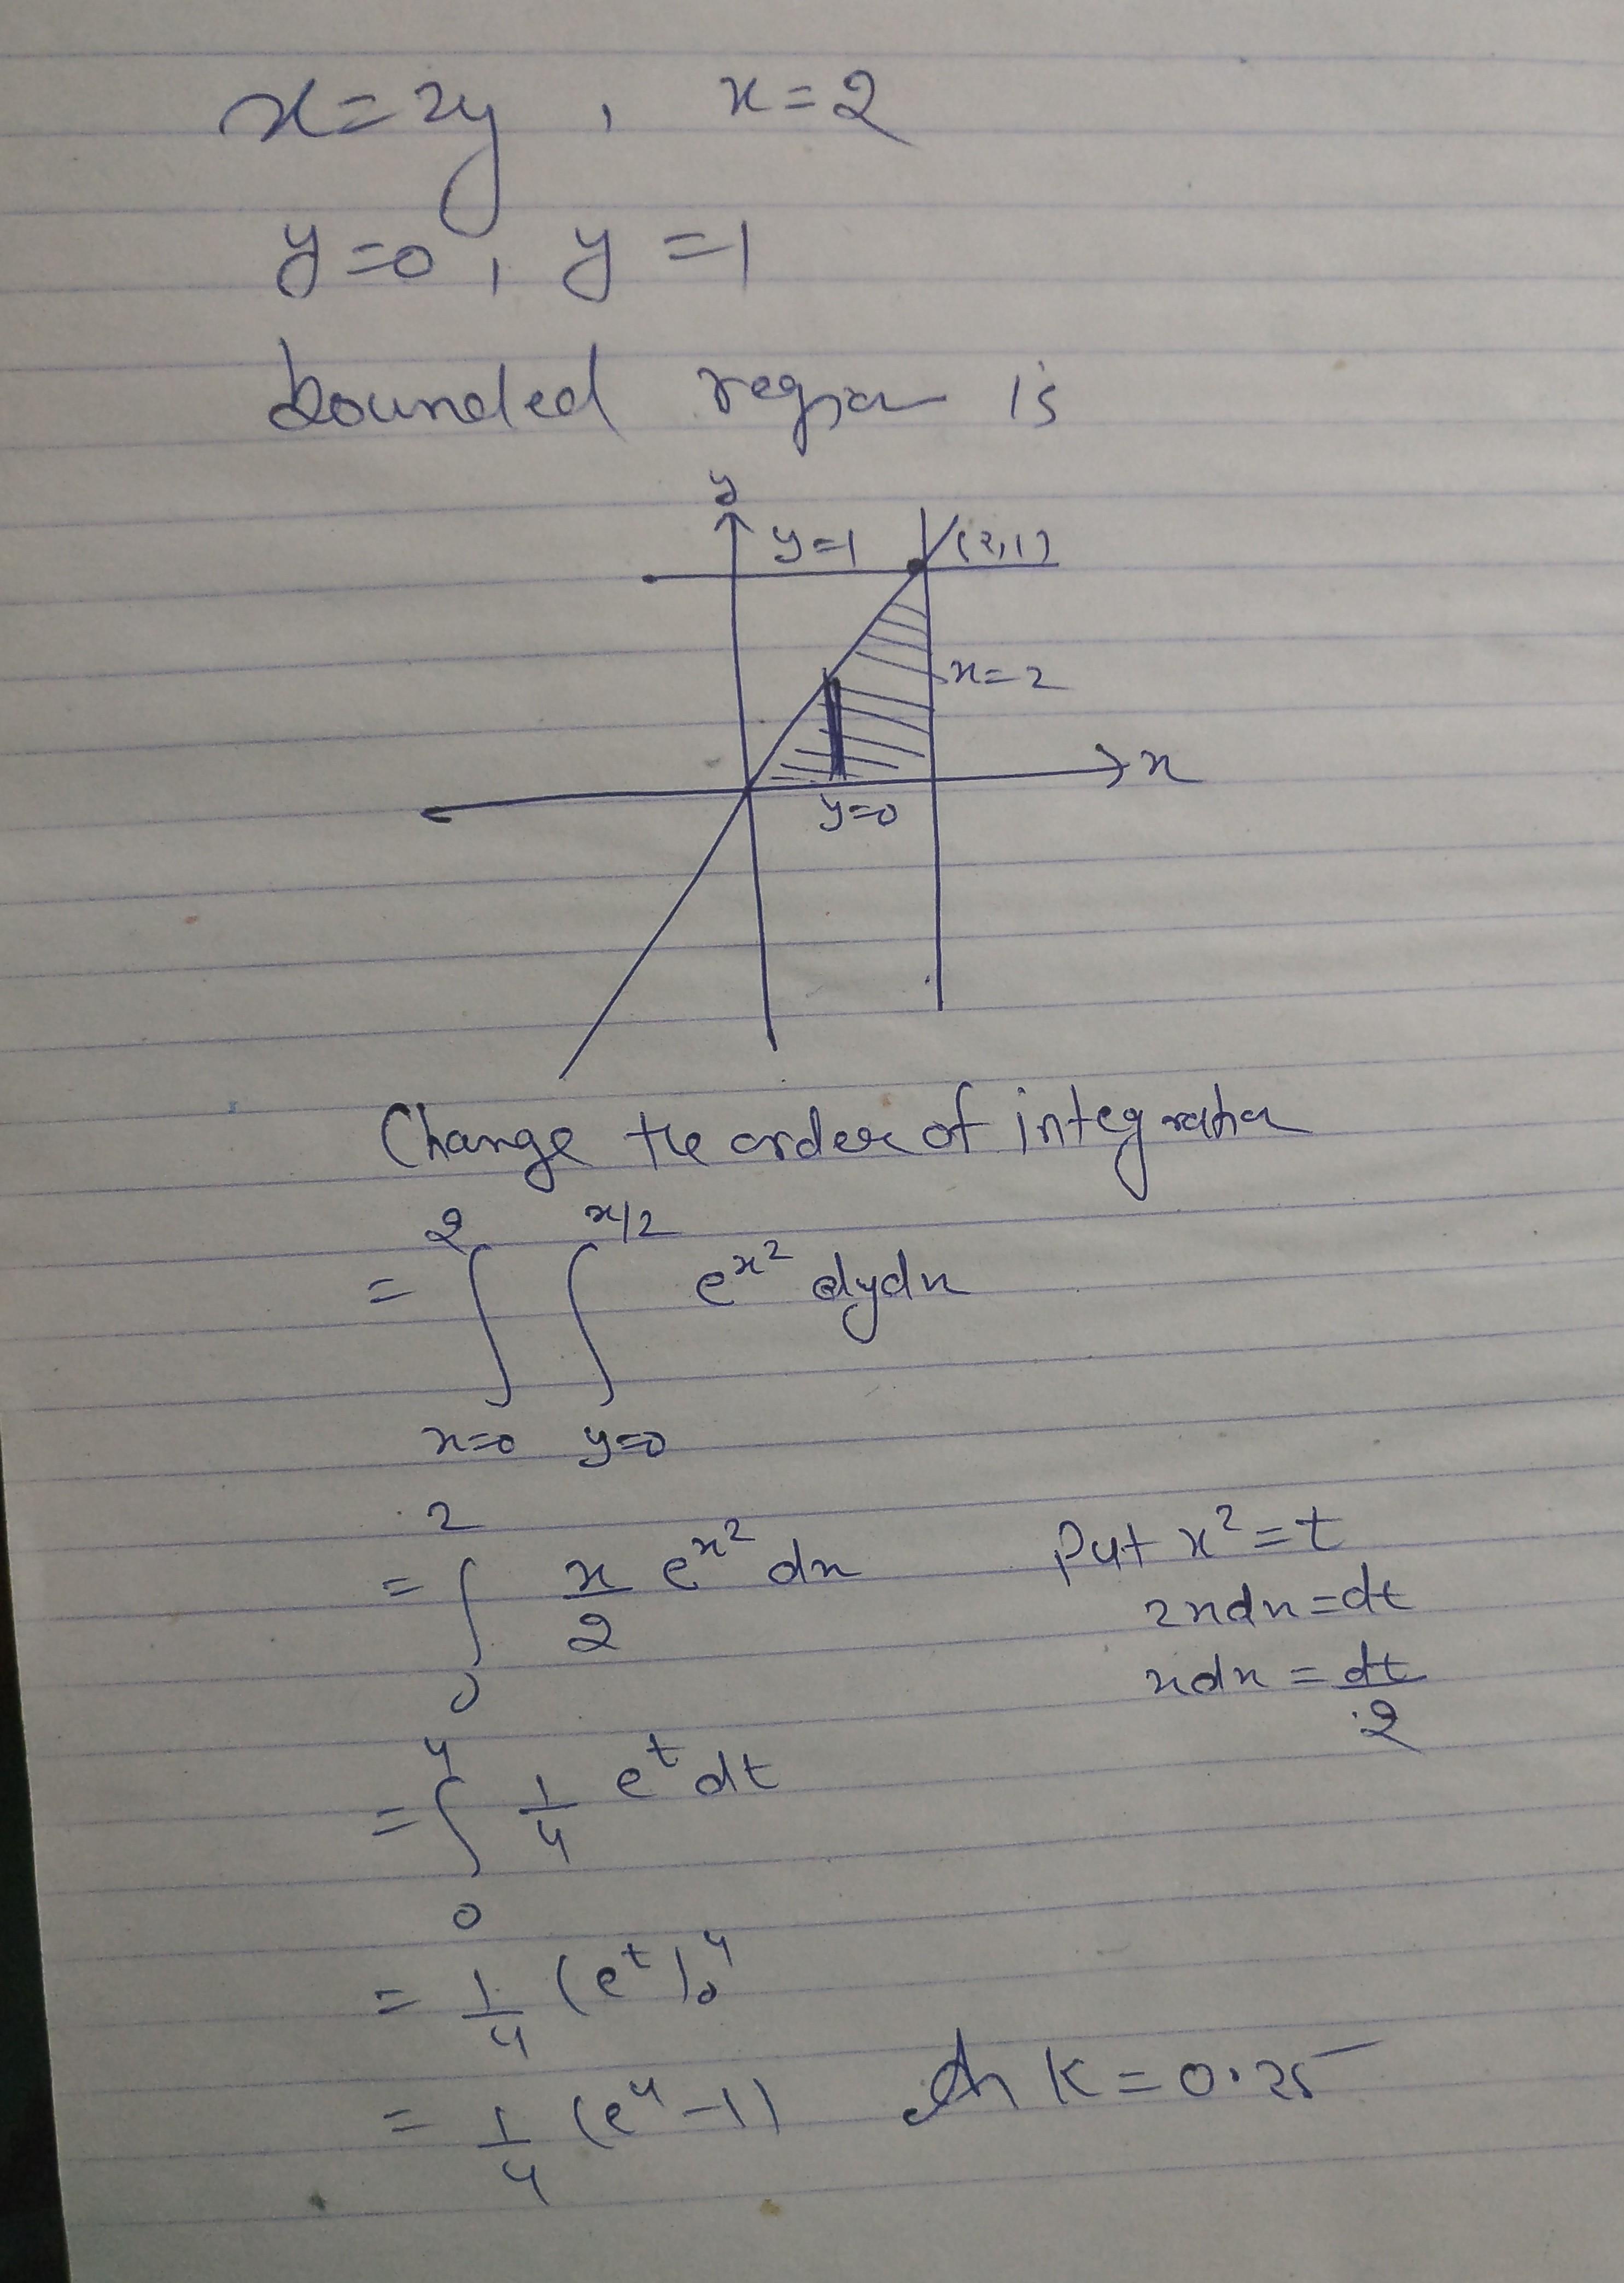 x=2y , x=2
y=0, y=1
bounded region is
y
y=1 (2,1)
x=2
x
y=0
Change the order of integration
2 x/2
= ∫ ∫ e^{x^2} dydx
x=0 y=0
= ∫_0^2 x/2 e^{x^2} dx Put x^2=t
2xdx=dt
xdx=dt/2
= ∫_0^4 1/4 e^t dt
= 1/4 (e^t)_0^4
= 1/4 (e^4-1) K=0.25